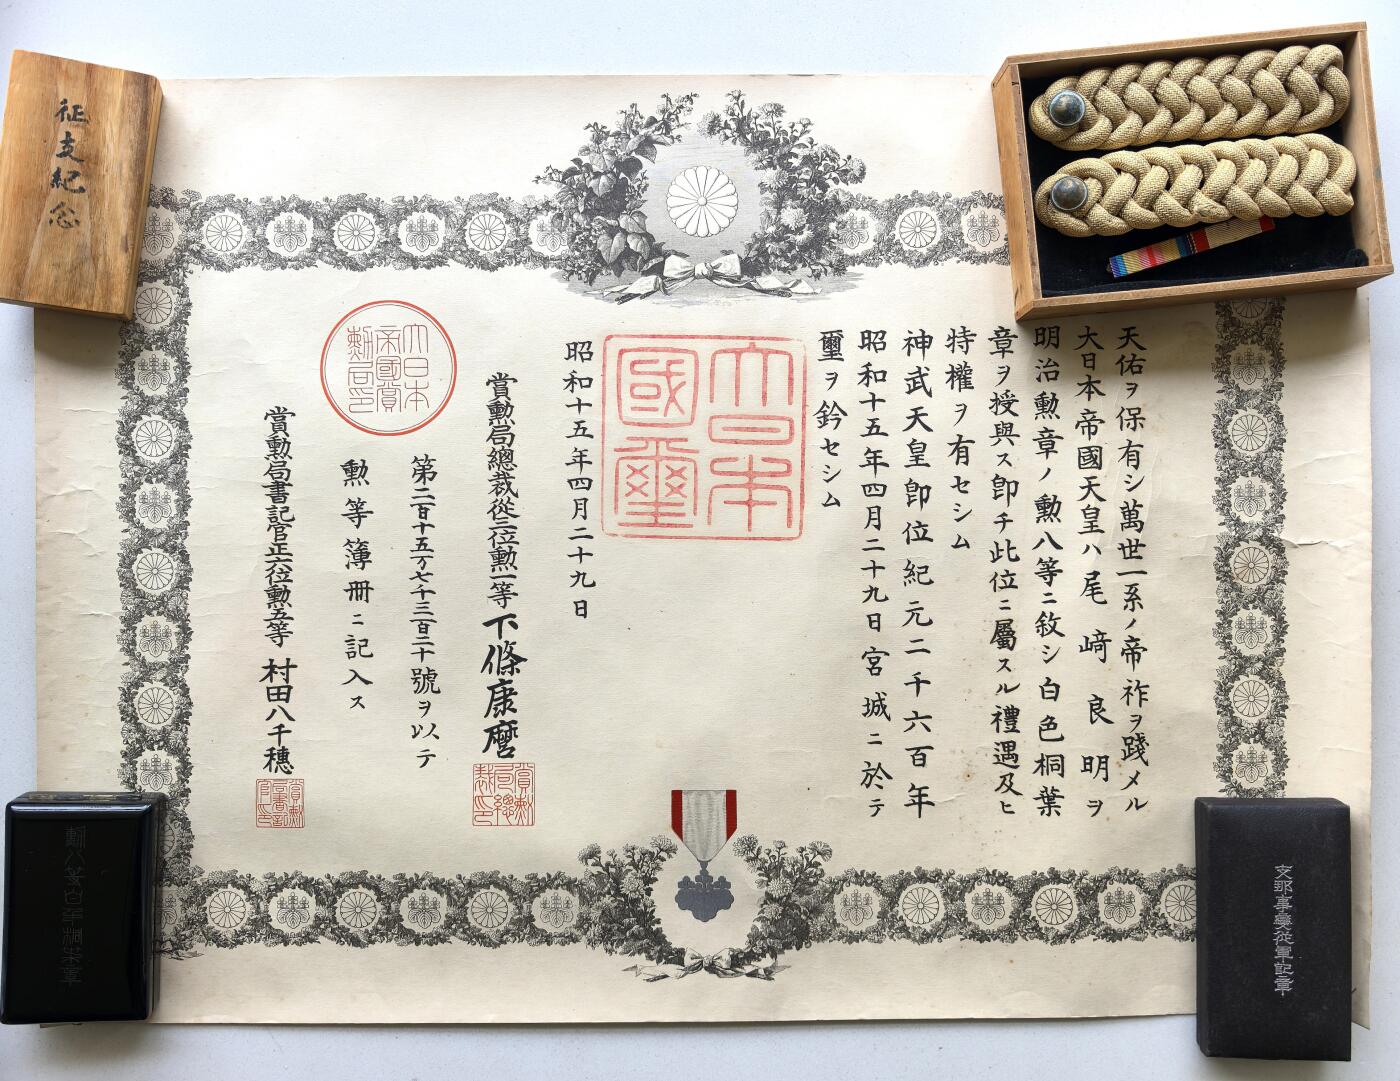 天佑ヲ保有シ萬世一系ノ帝祚ヲ踐メル
大日本帝國天皇ハ尾﨑良明ヲ
明治勲章ノ勲八等ニ敘シ白色桐葉
章ヲ授與ス卽チ此位ニ屬スル禮遇及ヒ
特權ヲ有セシム
神武天皇卽位紀元二千六百年
昭和十五年四月二十九日宮城ニ於テ
璽ヲ鈐セシム
大日本國璽
昭和十五年四月二十九日
賞勲局總裁從三位勲一等下條康麿
賞勲局總裁印
第二百十五万七千三百二十號ヲ以テ
勲等簿冊ニ記入ス
大日本帝國賞勲局印
賞勲局書記官正六位勲五等村田八千穗
賞勲局書記官印
征支紀念
勲八等白色桐葉章
支那事變從軍記章